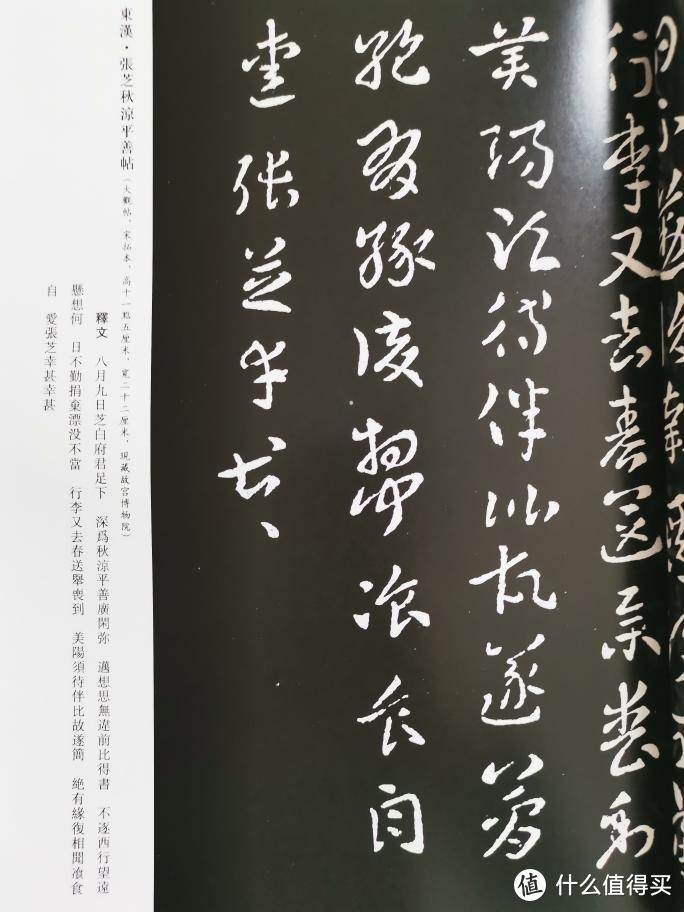 行李又去春送舉喪到
美陽須待伴比故遂簡
絶有緣復相聞飡食自
愛張芝幸甚
東漢・張芝秋涼平善帖（大觀帖，宋拓本，高十一點五厘米，寬二十二厘米，現藏故宮博物院）
釋文　八月九日芝白府君足下　深爲秋涼平善廣閑弥　邁想思無違前比得書　不逐西行望遠
懸想何　日不勤捐棄漂没不當　行李又去春送舉喪到　美陽須待伴比故遂簡　絶有緣復相聞飡食
自　愛張芝幸甚幸甚
值 什么值得买